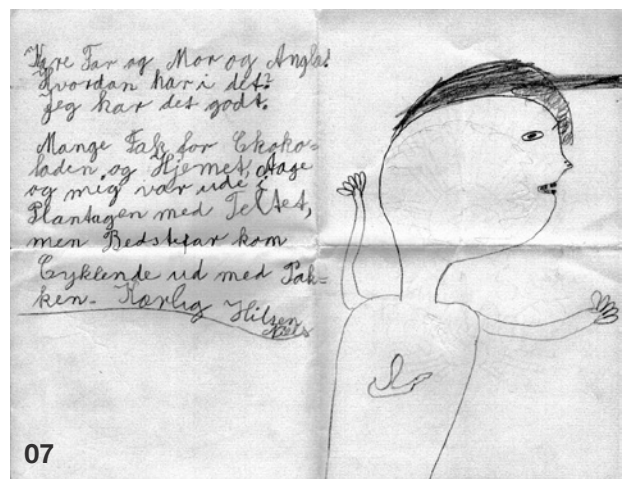 Kære Far og Mor og Angla!
Hvordan har i det?
Jeg har det godt.
Mange Tak for Ckoko=
laden, og Hjemet, Aage
og mig var ude i
Plantagen med Teltet,
men Bedstefar kom
Cyklende ud med Pak=
ken. Kærlig
Hilsen
Niels
07